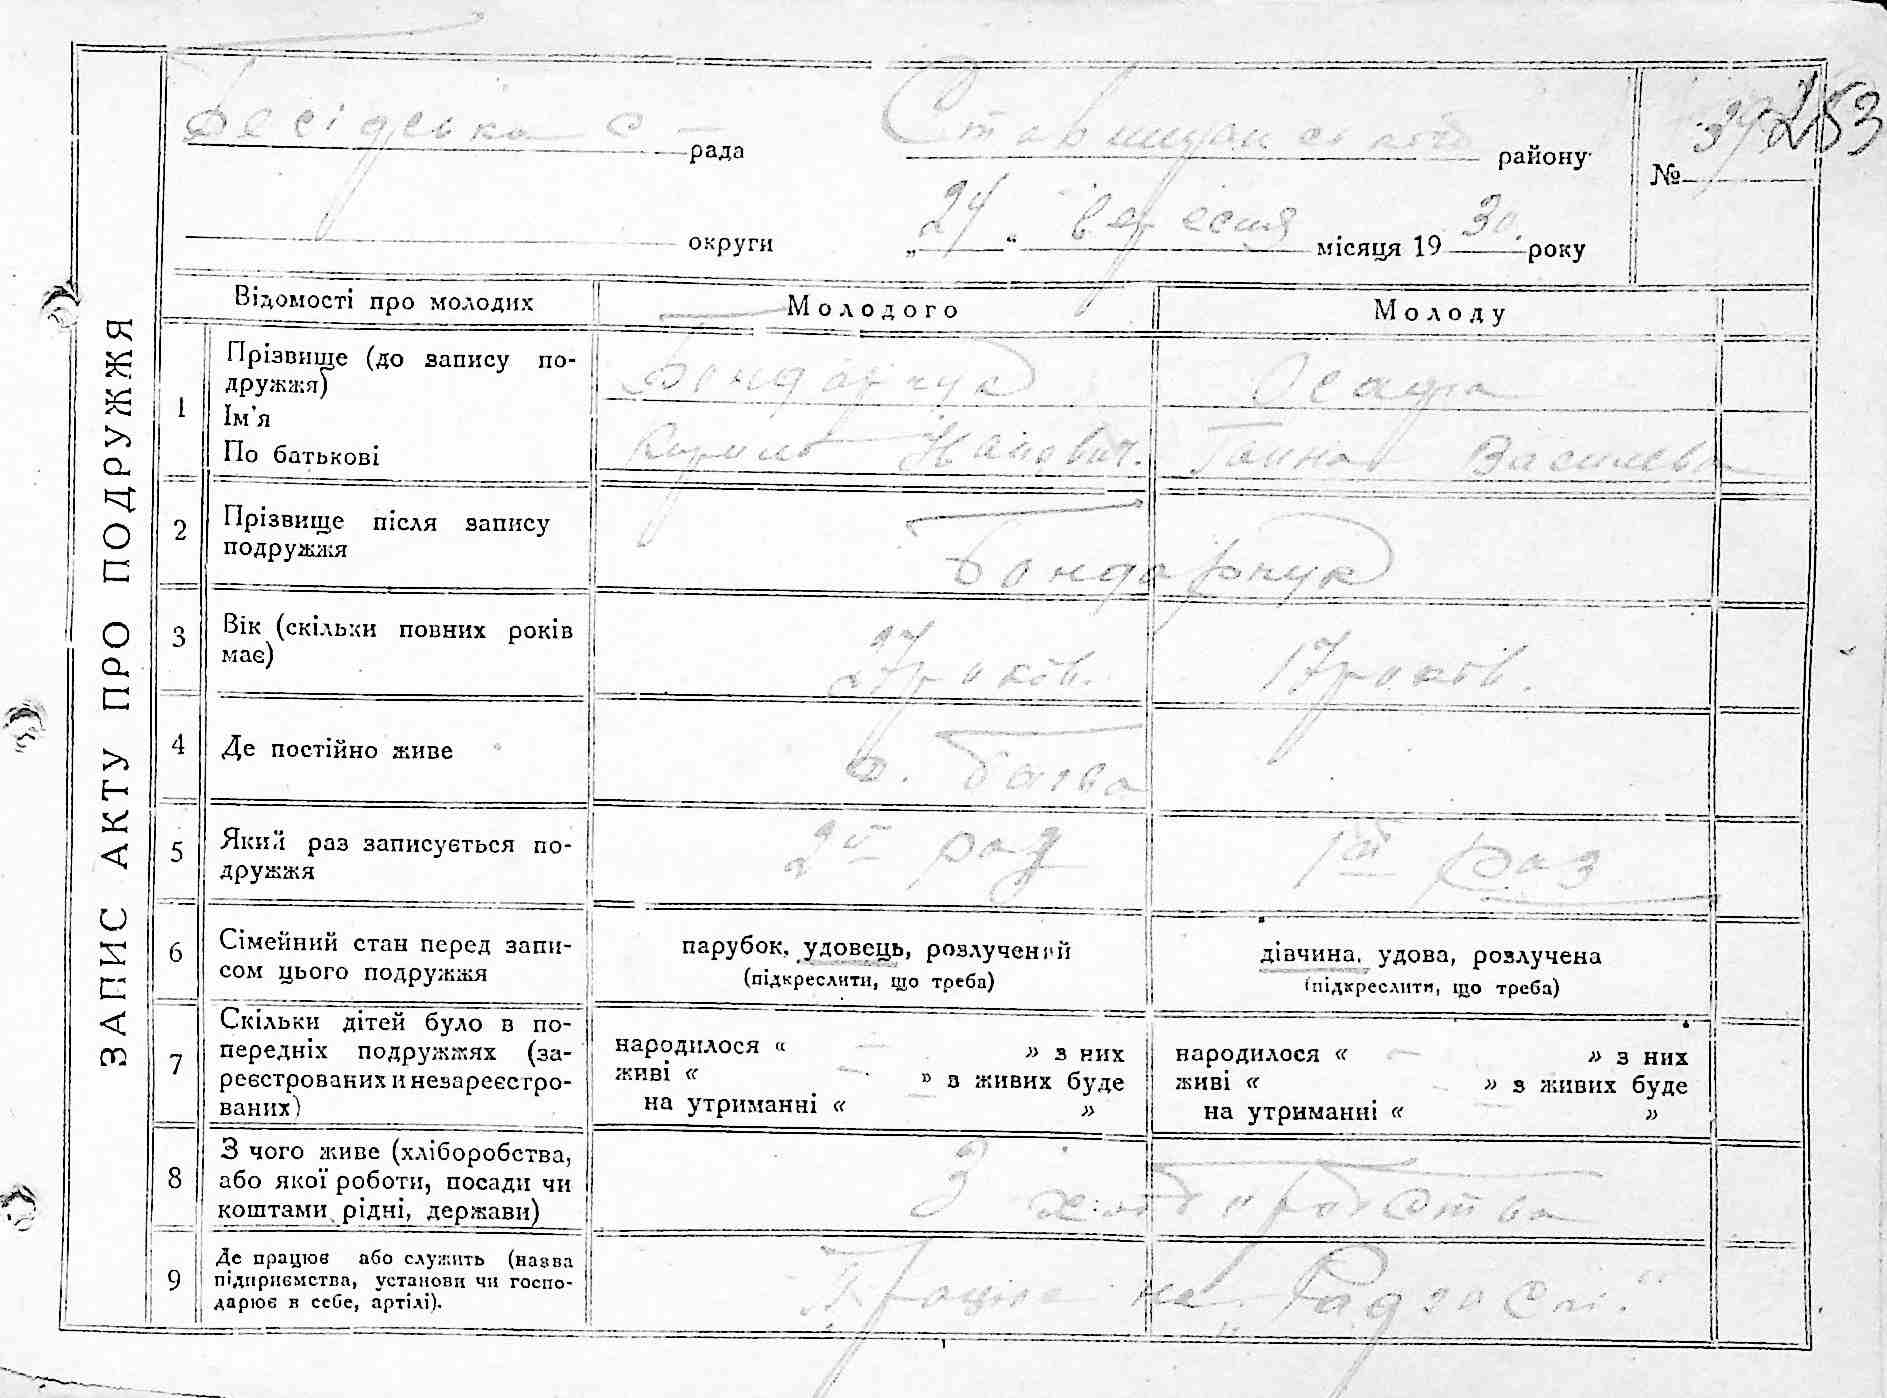 Бесідська с рада Ставищанського району
№ 37 253
округи „24“ вересня місяця 1930. року
ЗАПИС АКТУ ПРО ПОДРУЖЖЯ
Відомості про молодих Молодого Молоду
1 Прізвище (до запису по-
дружжя) Бондарчук
Ім'я
По батькові Кирило Ганна Василева
2 Прізвище після запису
подружжя Бондарчук
3 Вік (скільки повних років
має) 27 років. 17 років.
4 Де постійно живе
5 Який раз записується по-
дружжя 2й раз 1й раз
6 Сімейний стан перед запи-
сом цього подружжя парубок, удовець, розлучений дівчина, удова, розлучена
(підкреслити, що треба) (підкреслити, що треба)
7 Скільки дітей було в по-
передніх подружжях (за-
реєстрованих и незареєстро-
ваних)
народилося « — » з них
живі « — » з живих буде
на утриманні « — »
народилося « — » з них
живі « — » з живих буде
на утриманні « — »
8 З чого живе (хліборобства,
або якої роботи, посади чи
коштами рідні, держави) З хліборобства
9 Де працює або служить (назва
підприємства, установи чи госпо-
дарює в себе, артілі). Працює на